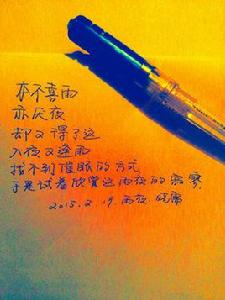 本不喜雨
亦厌夜
却又得了这
入夜又逢雨
找不到催眠的方式
于是试着欣赏这雨夜的寂寥
2015.2.19.雨夜